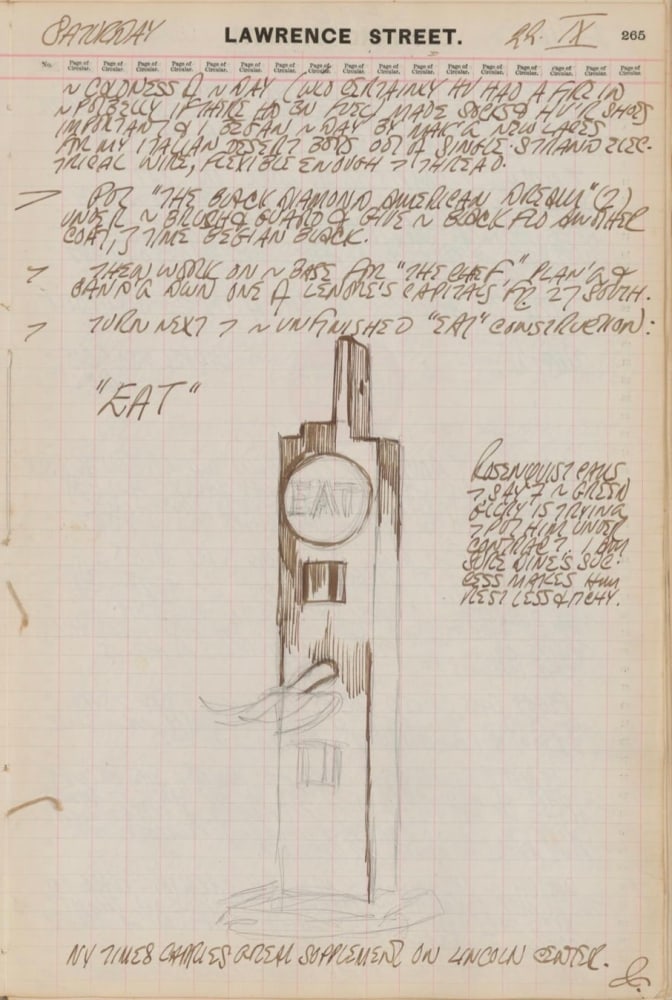 SATURDAY LAWRENCE STREET. 22. IX 265
No. Page of Circular. Page of Circular. Page of Circular. Page of Circular. Page of Circular. Page of Circular. Page of Circular. Page of Circular. Page of Circular. Page of Circular. Page of Circular. Page of Circular. Page of Circular. Page of Circular. Page of Circular. Page of Circular. Page of Circular.
~ COLDNESS OF ~ DAY (WLD CERTAINLY HV HAD A FIRE IN
~ POTBELLY IF THERE HD BN FUEL) MADE SOCKS & HVIR SHOES
IMPORTANT & I BEGAN ~ DAY BY MAK'G NEW LACES
FOR MY ITALIAN DESERT BOOTS OUT OF A SINGLE-STRAND ELEC-
TRICAL WIRE, FLEXIBLE ENOUGH TO THREAD.
PUT "THE BLACK DIAMOND AMERICAN DREAM" (2)
UNDER ~ BRUSH & GIVE ~ BLACK ANOTHER
COAT, TIME BEGIAN BLACK.
THEN WORK ON ~ BASE FOR "THE CHIEF," PLAN'G &
SAND'G DWN ONE OF LENORE'S CAPITALS FR 27 SOUTH.
TURN NEXT TO ~ UNFINISHED "EAT" CONSTRUCTION:
"EAT"
EAT
ROSENQUIST CALLS
TO SAY ~ GREEN
GLLRY IS TRYING
TO PUT HIM UNDER
CONTRACT. I AM
SURE DINE'S SUC-
CESS MAKES HIM
REST LESS & ITCHY.
NY TIMES CARRIES GREAT SUPPLEMENT ON LINCOLN CENTER.